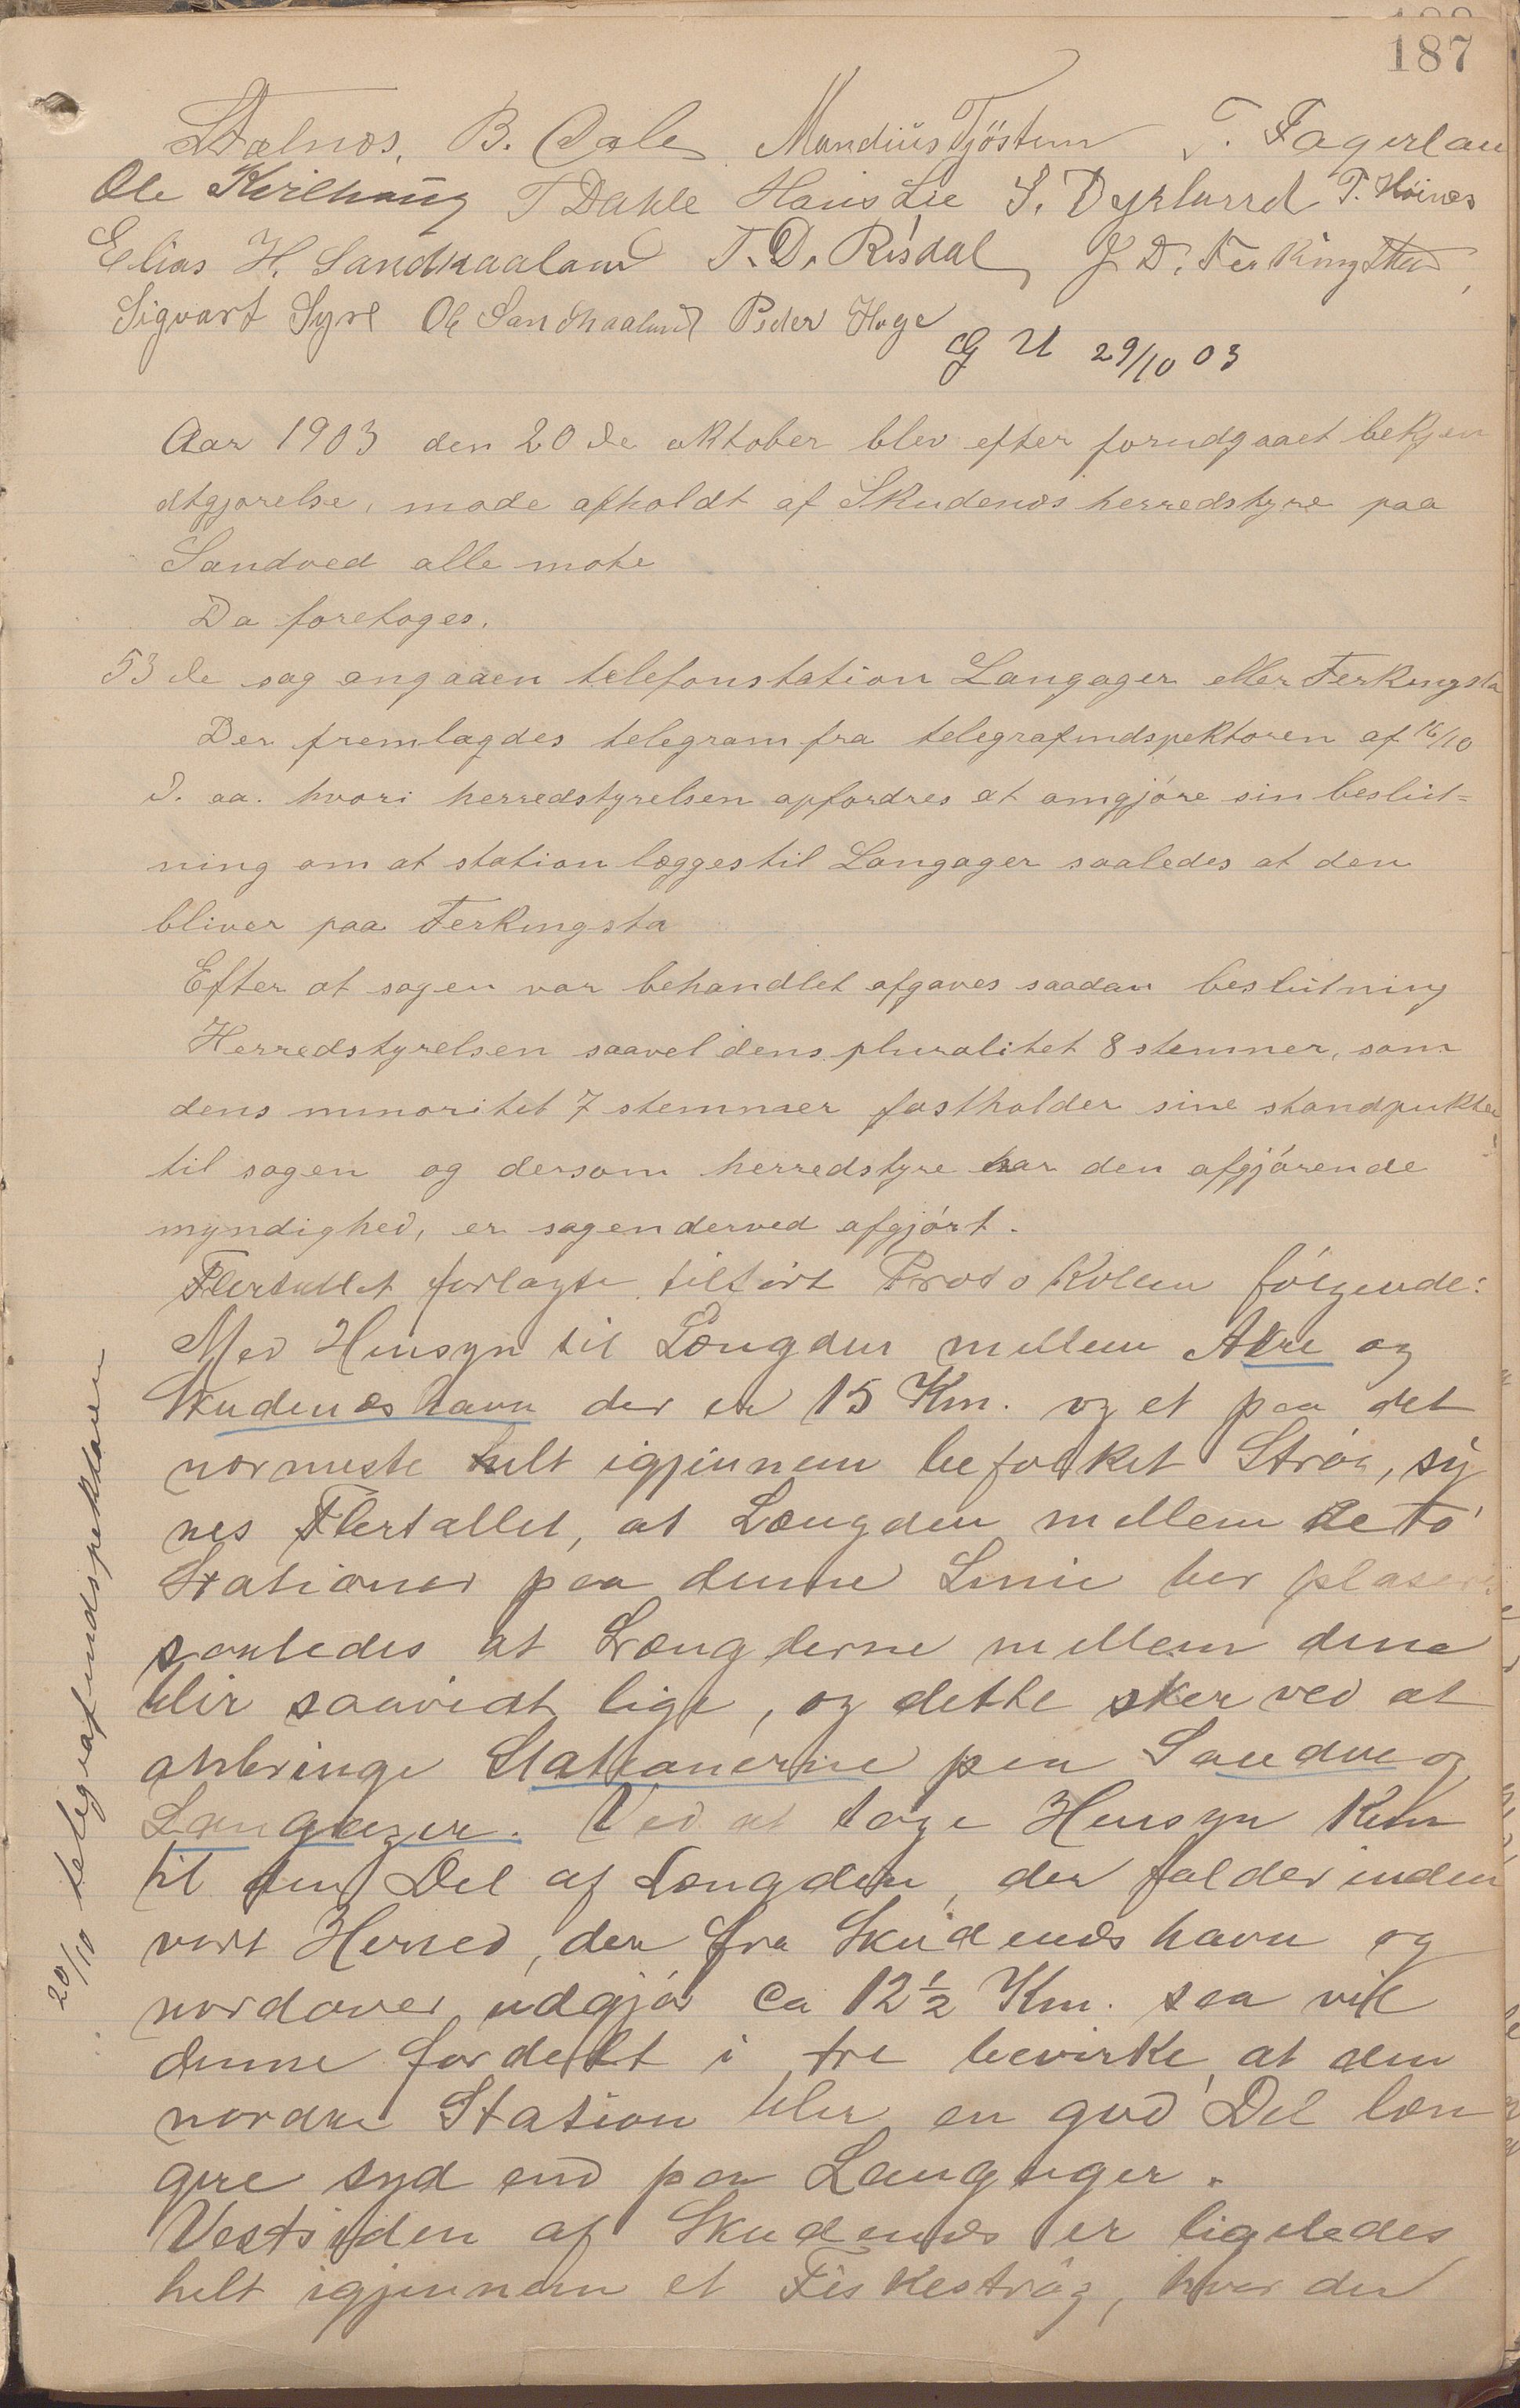 187
Stælnos. B. Dale Mandius Tjöstem T. Fagerlan
Ole Kvilhaug T Dahle Hans Lie S. Dyrlurrd T. Höines
Elias H. Sandhaaland T. D. Risdal J D. Ferkingstad
Sigvart Syre Ol Sandhaaland Peder Hoge
G U 29/10 03
Aar 1903 den 20de oktober blev efter forudgaaet bekjen
dtgjorelse, mode afholdt af Skudenæs herredstyre paa
Sandved alle mote
Da foretoges.
53de sag angaaen telefonstation Langager eller Ferkingsta
Der fremlagdes telegram fra telegrafindspektoren af 16/10
d. aa. hvori herredstyrelsen opfordres at omgjöre sin beslut=
ning om at station lægges til Langager saaledes at den
bliver paa Ferkingsta
Efter at sagen var behandlet afgaves saadan beslutning
Herredstyrelsen saavel dens pluralitet 8 stemner, som
dens minoritet 7 stemmer fastholder sine standpukter
til sagen og dersom herredstyre har den afgjörende
myndighed, er sagen derved afgjört.
Flertallet forlagte tilfört Protokolen fölgende:
Med Hensyn til Længden mellem Akre og
Skudenæshavn der er 15 Km. og et paa det
nærmeste helt igjennem befolket Strög, sy
nes Flertallet, at Længden mellem de to
Stationer paa denne Linie bør plasere
saaledes at Længderne mellem dene
blir saavidt lige, og dette sker ved at
anbringe Stationerne paa Sandve og
Langager. Ved at tage Hensyn kun
til den Del af Længden, der falder inden
vort Herred, der fra Skudenæshavn og
nordover udgjör ca 12½ Km. saa vil
denne fordelt i tre bevirke at den
nordre Station blir en god Del læn
gere syd end paa Langager.
Vestsiden af Skudenæs er ligeledes
helt igjennem et Fiskeströg, hvor der
20/10 telegrafindspektoren